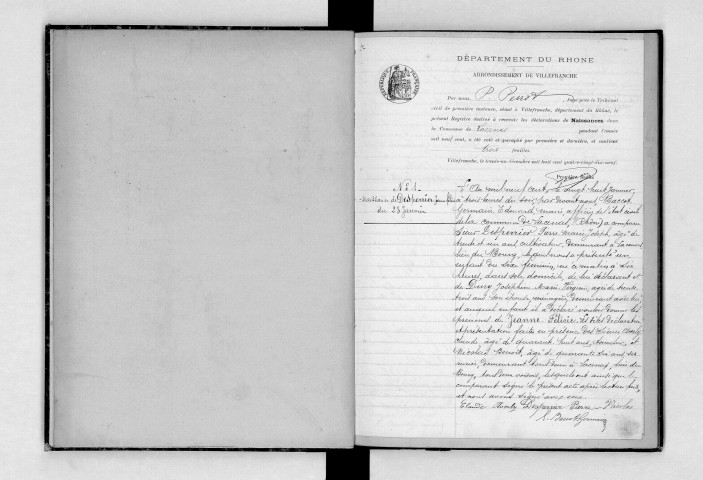 DÉPARTEMENT DU RHONE
ARRONDISSEMENT DE VILLEFRANCHE
Par nous, P. Perrot, Juge près le Tribunal
civil de première instance, séant à Villefranche, département du Rhône, le
présent Registre destiné à recevoir les déclarations de Naissances dans
la Commune de Lacenas pendant l'année
mil neuf cent, a été coté et paraphé par première et dernière, et contient
trois feuilles.
Villefranche, le trente-un décembre mil huit cent quatre-vingt-dix-neuf.
Première feuille
N° 1
Naissance Desperrier Jeanne
du 28 Janvier
L'An mil neuf cent, le vingt huit janvier,
à trois heures du soir, par devant nous,
Germain Edouard, maire, officier de l'état civil
de la commune de Lacenas (Rhône) a comparu
Sieur Desperrier Pierre Marie Joseph, âgé de
trente et un ans, cultivateur, demeurant à Lacenas
lieu du Bourg, lequel nous a présenté un
enfant du sexe féminin, né ce matin à six
heures, dans son domicile, de lui déclarant et
de Joséphine Marie Virginie, âgée de trente
trois ans, son épouse, ménagère, demeurant avec lui,
et auquel enfant il a déclaré vouloir donner les
prénoms de Jeanne Félicie. Les dites déclaration
et présentation faites en présence des Sieurs
Claude, âgé de quarante huit ans, et
Nicolas Benoit, âgé de quarante six ans
demeurant tous deux à Lacenas, lieu du
Bourg, tous deux voisins, lesquels ont ainsi que le
comparant signé le présent acte après lecture faite
et nous avons signé avec eux.
Claude Desperrier Pierre Nicolas